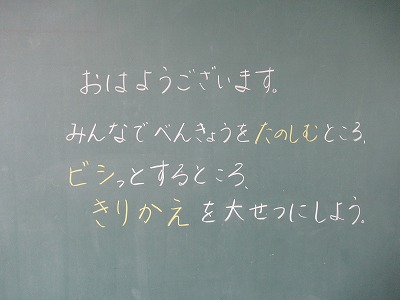 おはようございます。
みんなでべんきょうをたのしむところ、
ビシっとするところ、
きりかえを大せつにしよう。